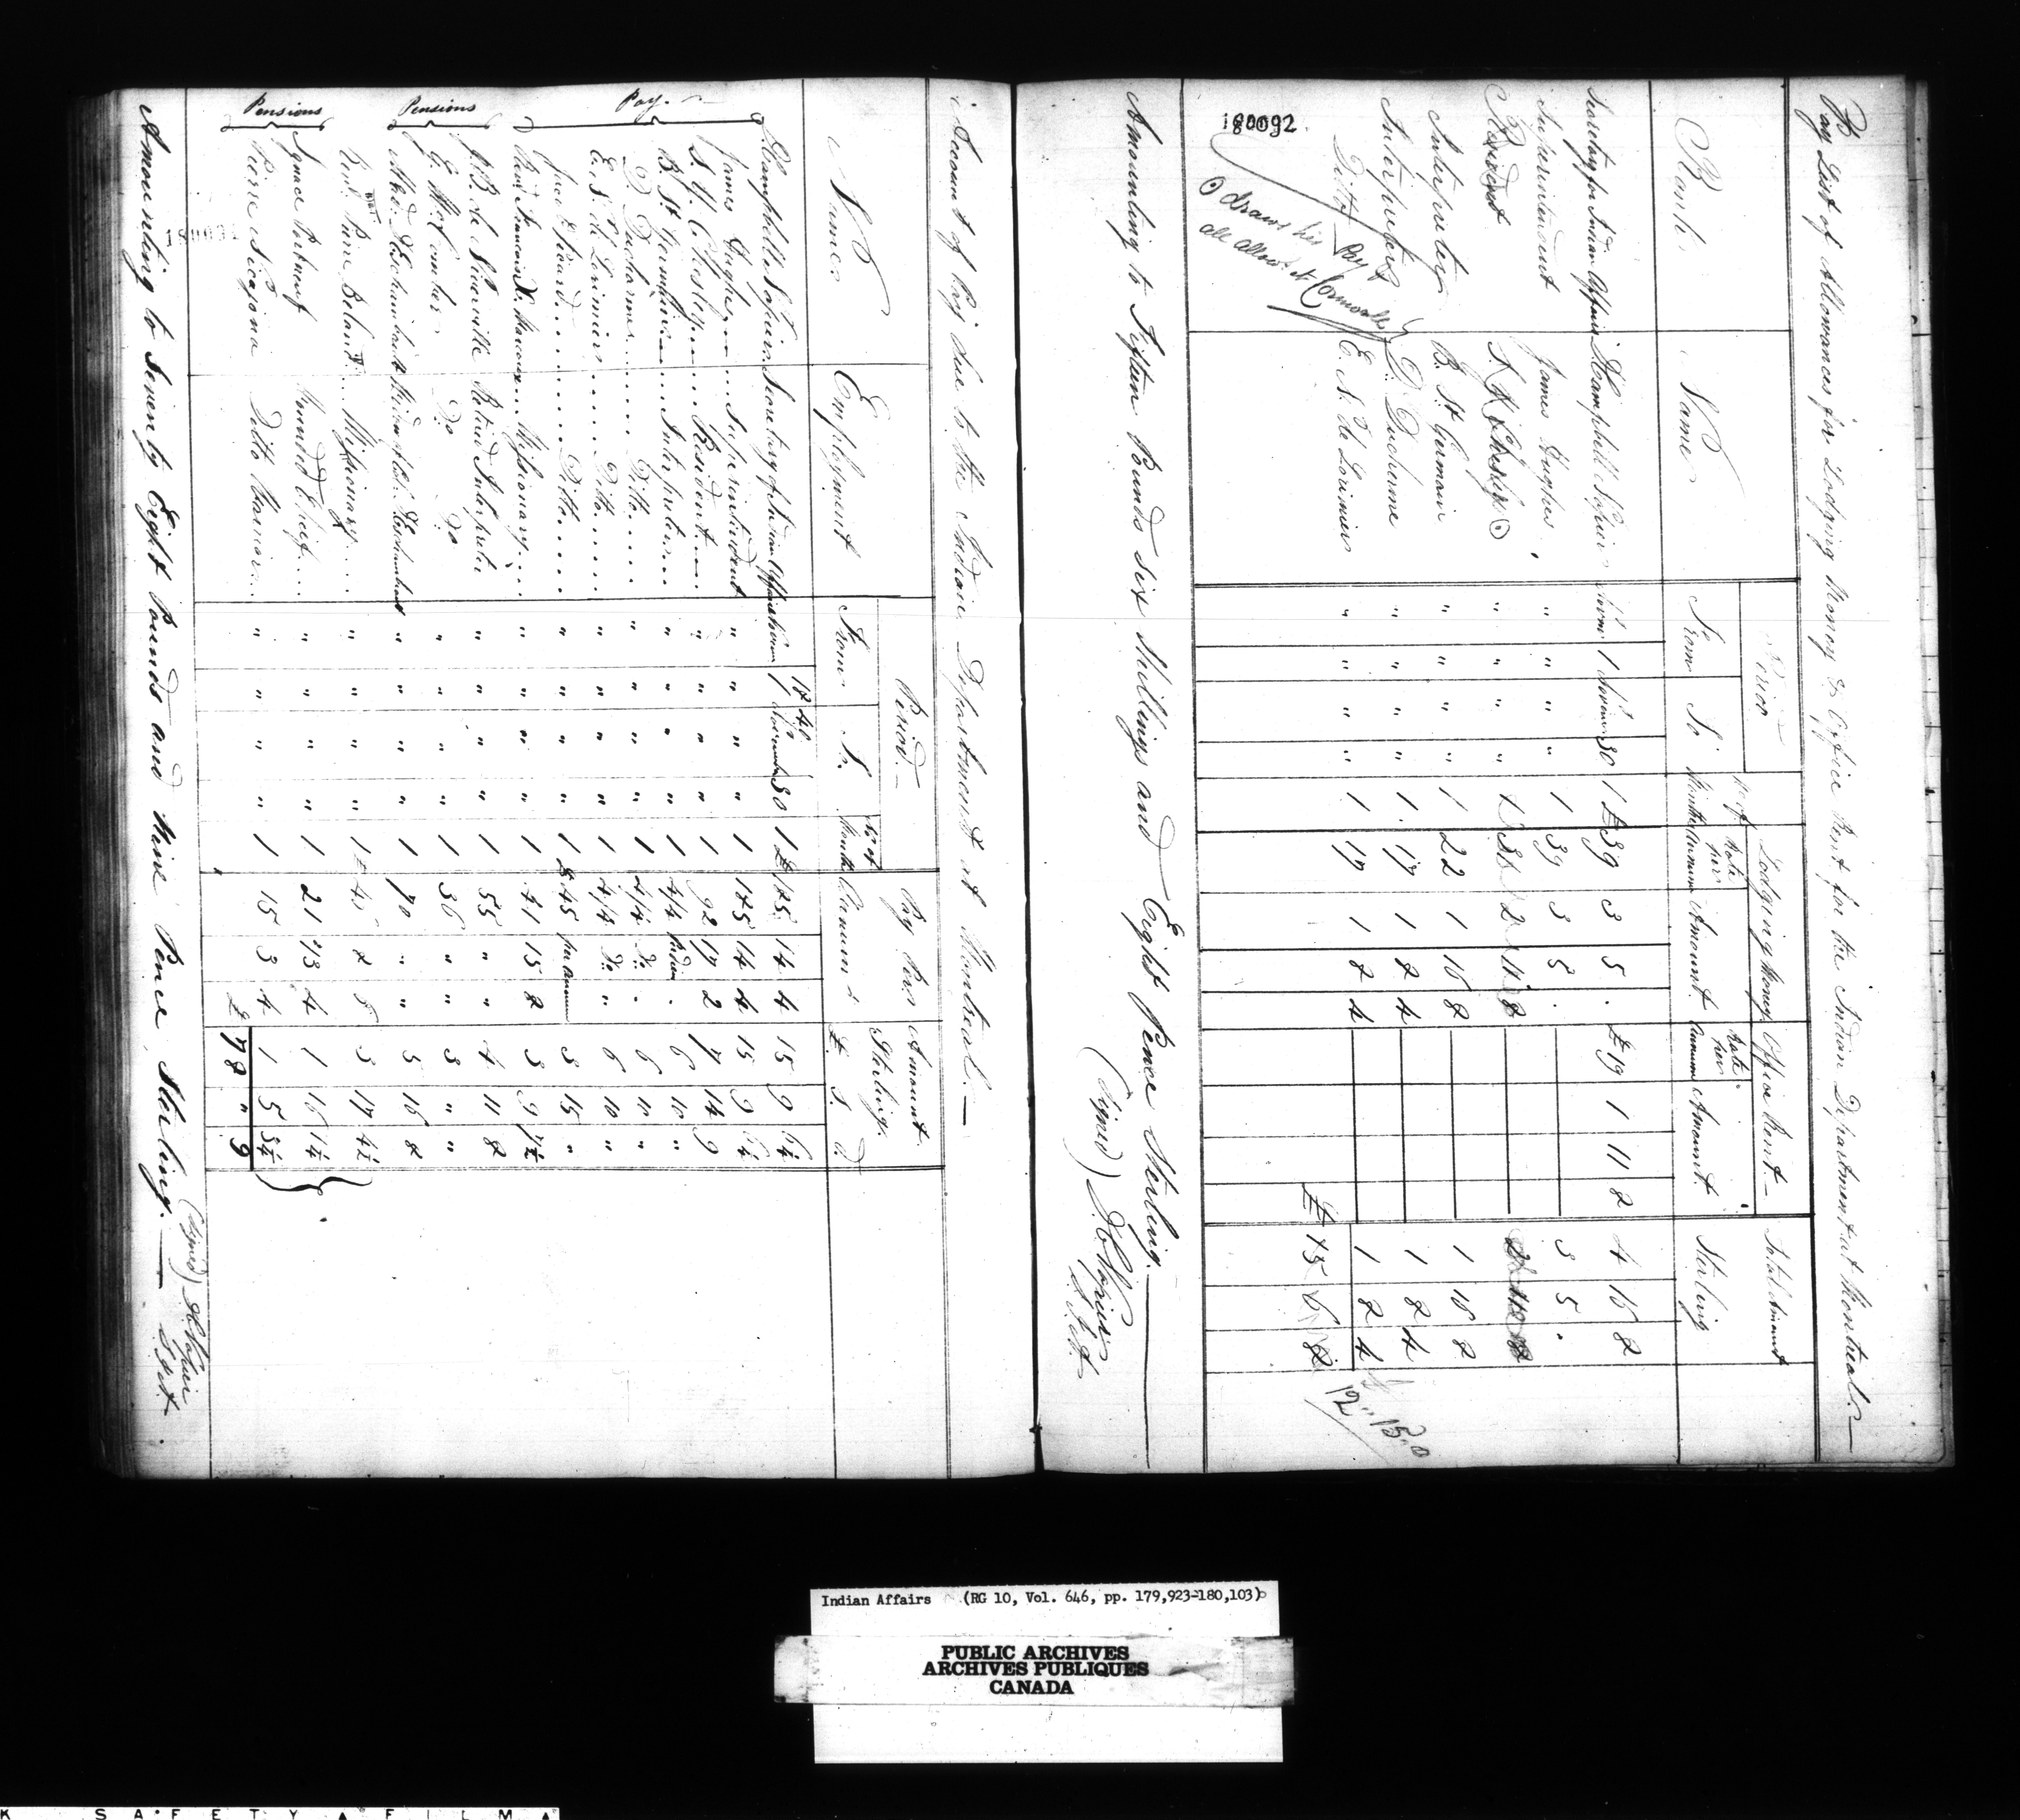 Pay List of Allowances for Lodging Money & Office Rent for the Indian Department at Montreal.
Rank Name Period No of Months Lodging Money Office Rent Total Amount Sterling
From To Rate per Annum Amount Rate per Annum Amount
Secretary for Indian Affairs D. Campbell Napier Novem 1st Novem 30 1 £39 3 5 . £19 1 11 8 4 16 8
Superintendent James Hughes " " " " 1 39 3 5 . 3 5 .
Resident S. Y. Chesley " " " " 1 31 2 11 8 2 11 8
Interpreter B. St Germain " " " " 1 22 1 16 8 1 16 8
Interpreter D. Ducharme " " " " 1 17 1 8 4 1 8 4
Ditto E. N. de Lorimier " " " " 1 17 1 8 4 1 8 4
£ 15 6 8
12 " 15 " 0
180092
draws his Pay &
all allow. at Cornwall
Amounting to Fifteen Pounds six Shillings and Eight Pence Sterling.
(Signed) D C Napier
Account of Pay due to the Indian Department at Montreal.
Names Employment Period Pay Per Annum Amount Sterling
From To No of Months £ S. d.
1840
Pay.
D. Campbell Napier Secretary of Indian Affairs 1st November 30 1 £185 14 4 15 9 6¼
James Hughes Superintendent " " " " 1 185 14 4 15 9 6¼
S. Y. Chesley Resident " " " " 1 92 17 2 7 14 9
B. St Germain Interpreter " " " " 1 4/4 per diem 6 10 "
D. Ducharme Ditto " " " " 1 4/4 Do 6 10 "
E. N. de Lorimier Ditto " " " " 1 4/4 Do 6 10 "
Ditto " " " " 1 £45 per annum 3 15 "
Revd Francois X. Marcoux Missionary " " " " 1 41 15 8 3 9 7½
Pensions
J. B. de Niverville Retired Interpreter " " " " 1 55 " " 4 11 8
G. McComber Do Do " " " " 1 36 " " 3 " "
" " " " 1 70 " " 5 16 8
Revd Missionary " " " " 1 3 17 4½
Pensions
Ignace Wounded Chief " " " " 1 21 13 4 1 16 1¼
Pierre Ditto Warrior " " " " 1 15 3 4 1 5 3¼
£ 78 " 9
Amounting to Seventy Eight Pounds and Nine Pence Sterling.
(Signed) D C Napier
Indian Affairs (RG 10, Vol. 646, pp. 179,923-180,103)
PUBLIC ARCHIVES
ARCHIVES PUBLIQUES
CANADA
K SAFETY FILM